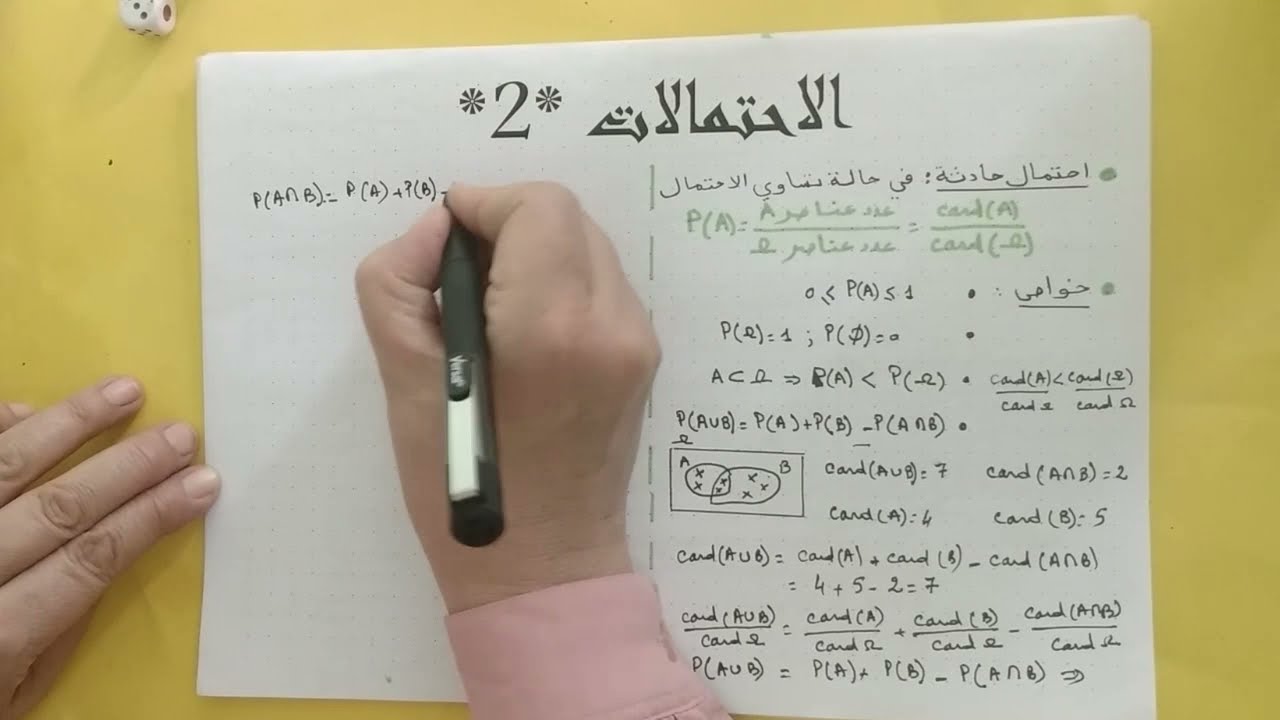 الاحتمالات *2*
احتمال حادثة: في حالة تساوي الاحتمال
P(A)= عدد عناصر A / عدد عناصر Ω = card(A) / card(Ω)
خواص :
0 ≤ P(A) ≤ 1
P(Ω)=1 ; P(∅)=0
A⊂Ω ⇒ P(A) < P(Ω) • card(A)/card Ω < card(Ω)/card Ω
P(A∪B)= P(A)+P(B) -P(A∩B)
Ω
A B
card(A∪B)= 7 card(A∩B)=2
card(A)=4 card(B)=5
card(A∪B)= card(A)+card(B)-card(A∩B)
= 4+5-2=7
card(A∪B)/card Ω = card(A)/card Ω + card(B)/card Ω - card(A∩B)/card Ω
P(A∪B) = P(A)+P(B)-P(A∩B) ⇒
P(A∩B)= P(A)+P(B)-